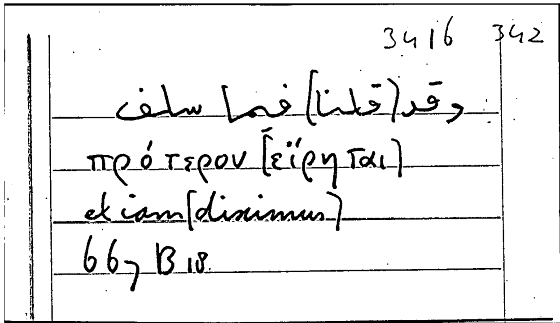 3416 342
وقد (قلنا) فيما سلف
πρότερον [εἴρηται]
etiam [diximus]
667 B 18